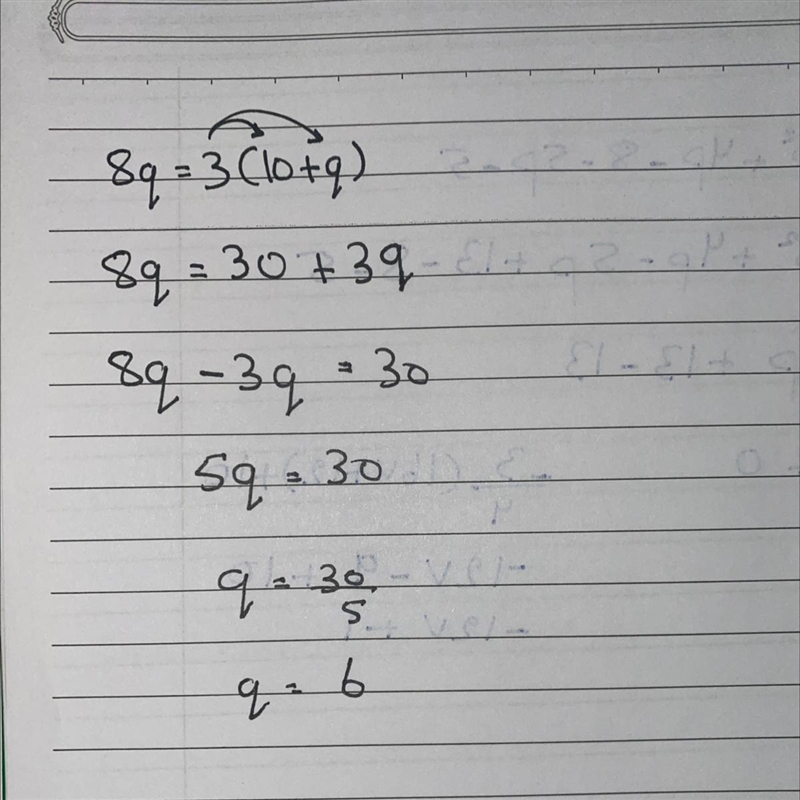 8q = 3(10+q)
8q = 30 + 3q
8q - 3q = 30
5q = 30
q = 30/5
q = 6